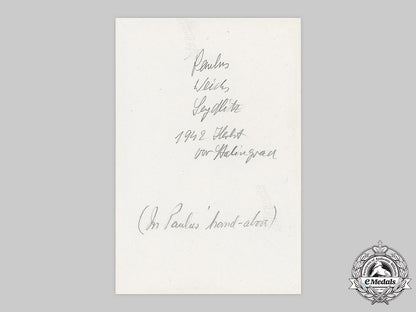 Paulus
Weichs
Seydlitz
1942 Herbst
vor Stalingrad
(In Paulus' hand-above)
eMedals